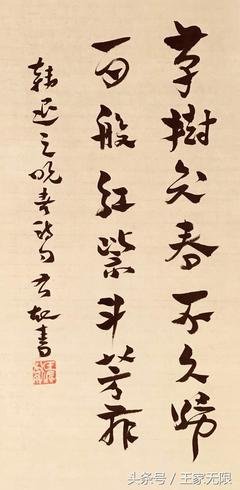 草樹知春不久歸
百般紅紫斗芳菲
韓退之晚春詩句 書
头条号 / 王家无限